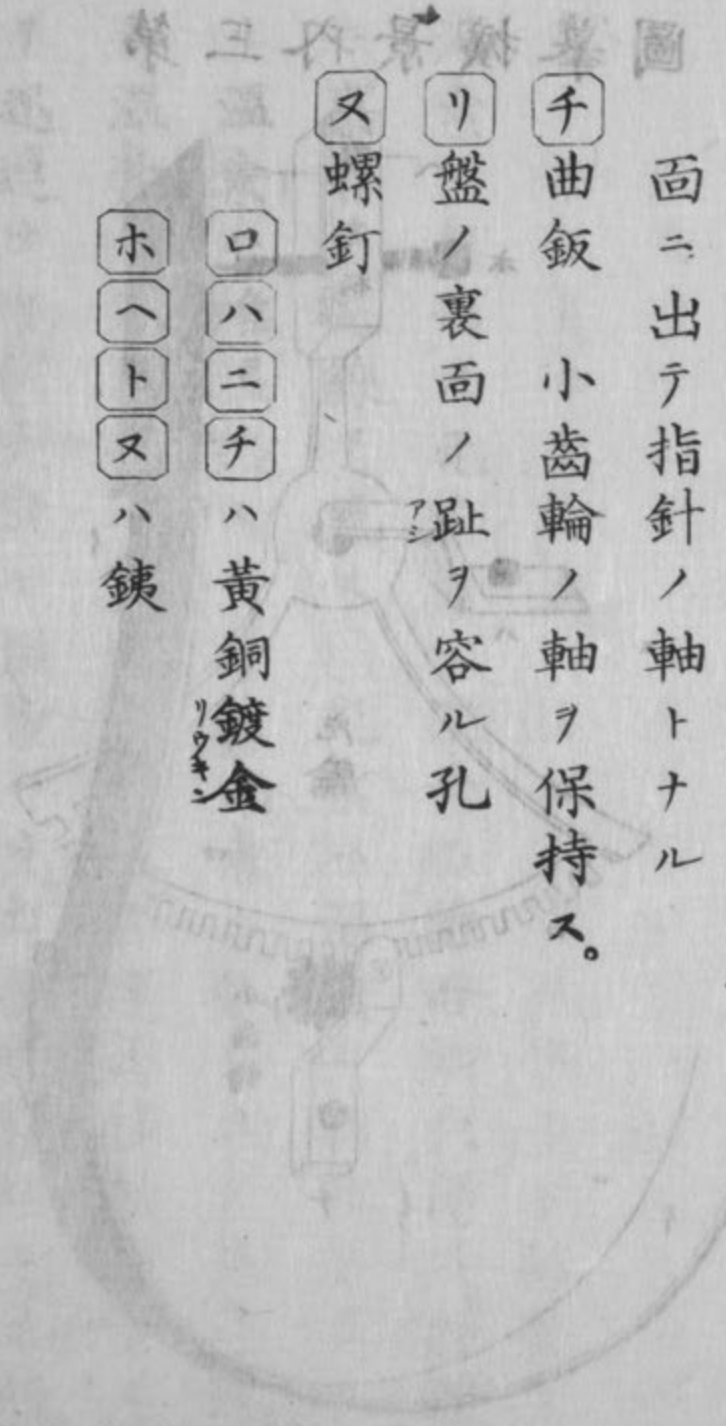 面ニ出テ指針ノ軸トナル
チ曲鈑 小齒輪ノ軸ヲ保持ス。
リ盤ノ裏面ノ趾アシヲ容ル孔
ヌ螺釘
ロハニチハ黃銅鍍金リウキン
ホヘトヌハ銕